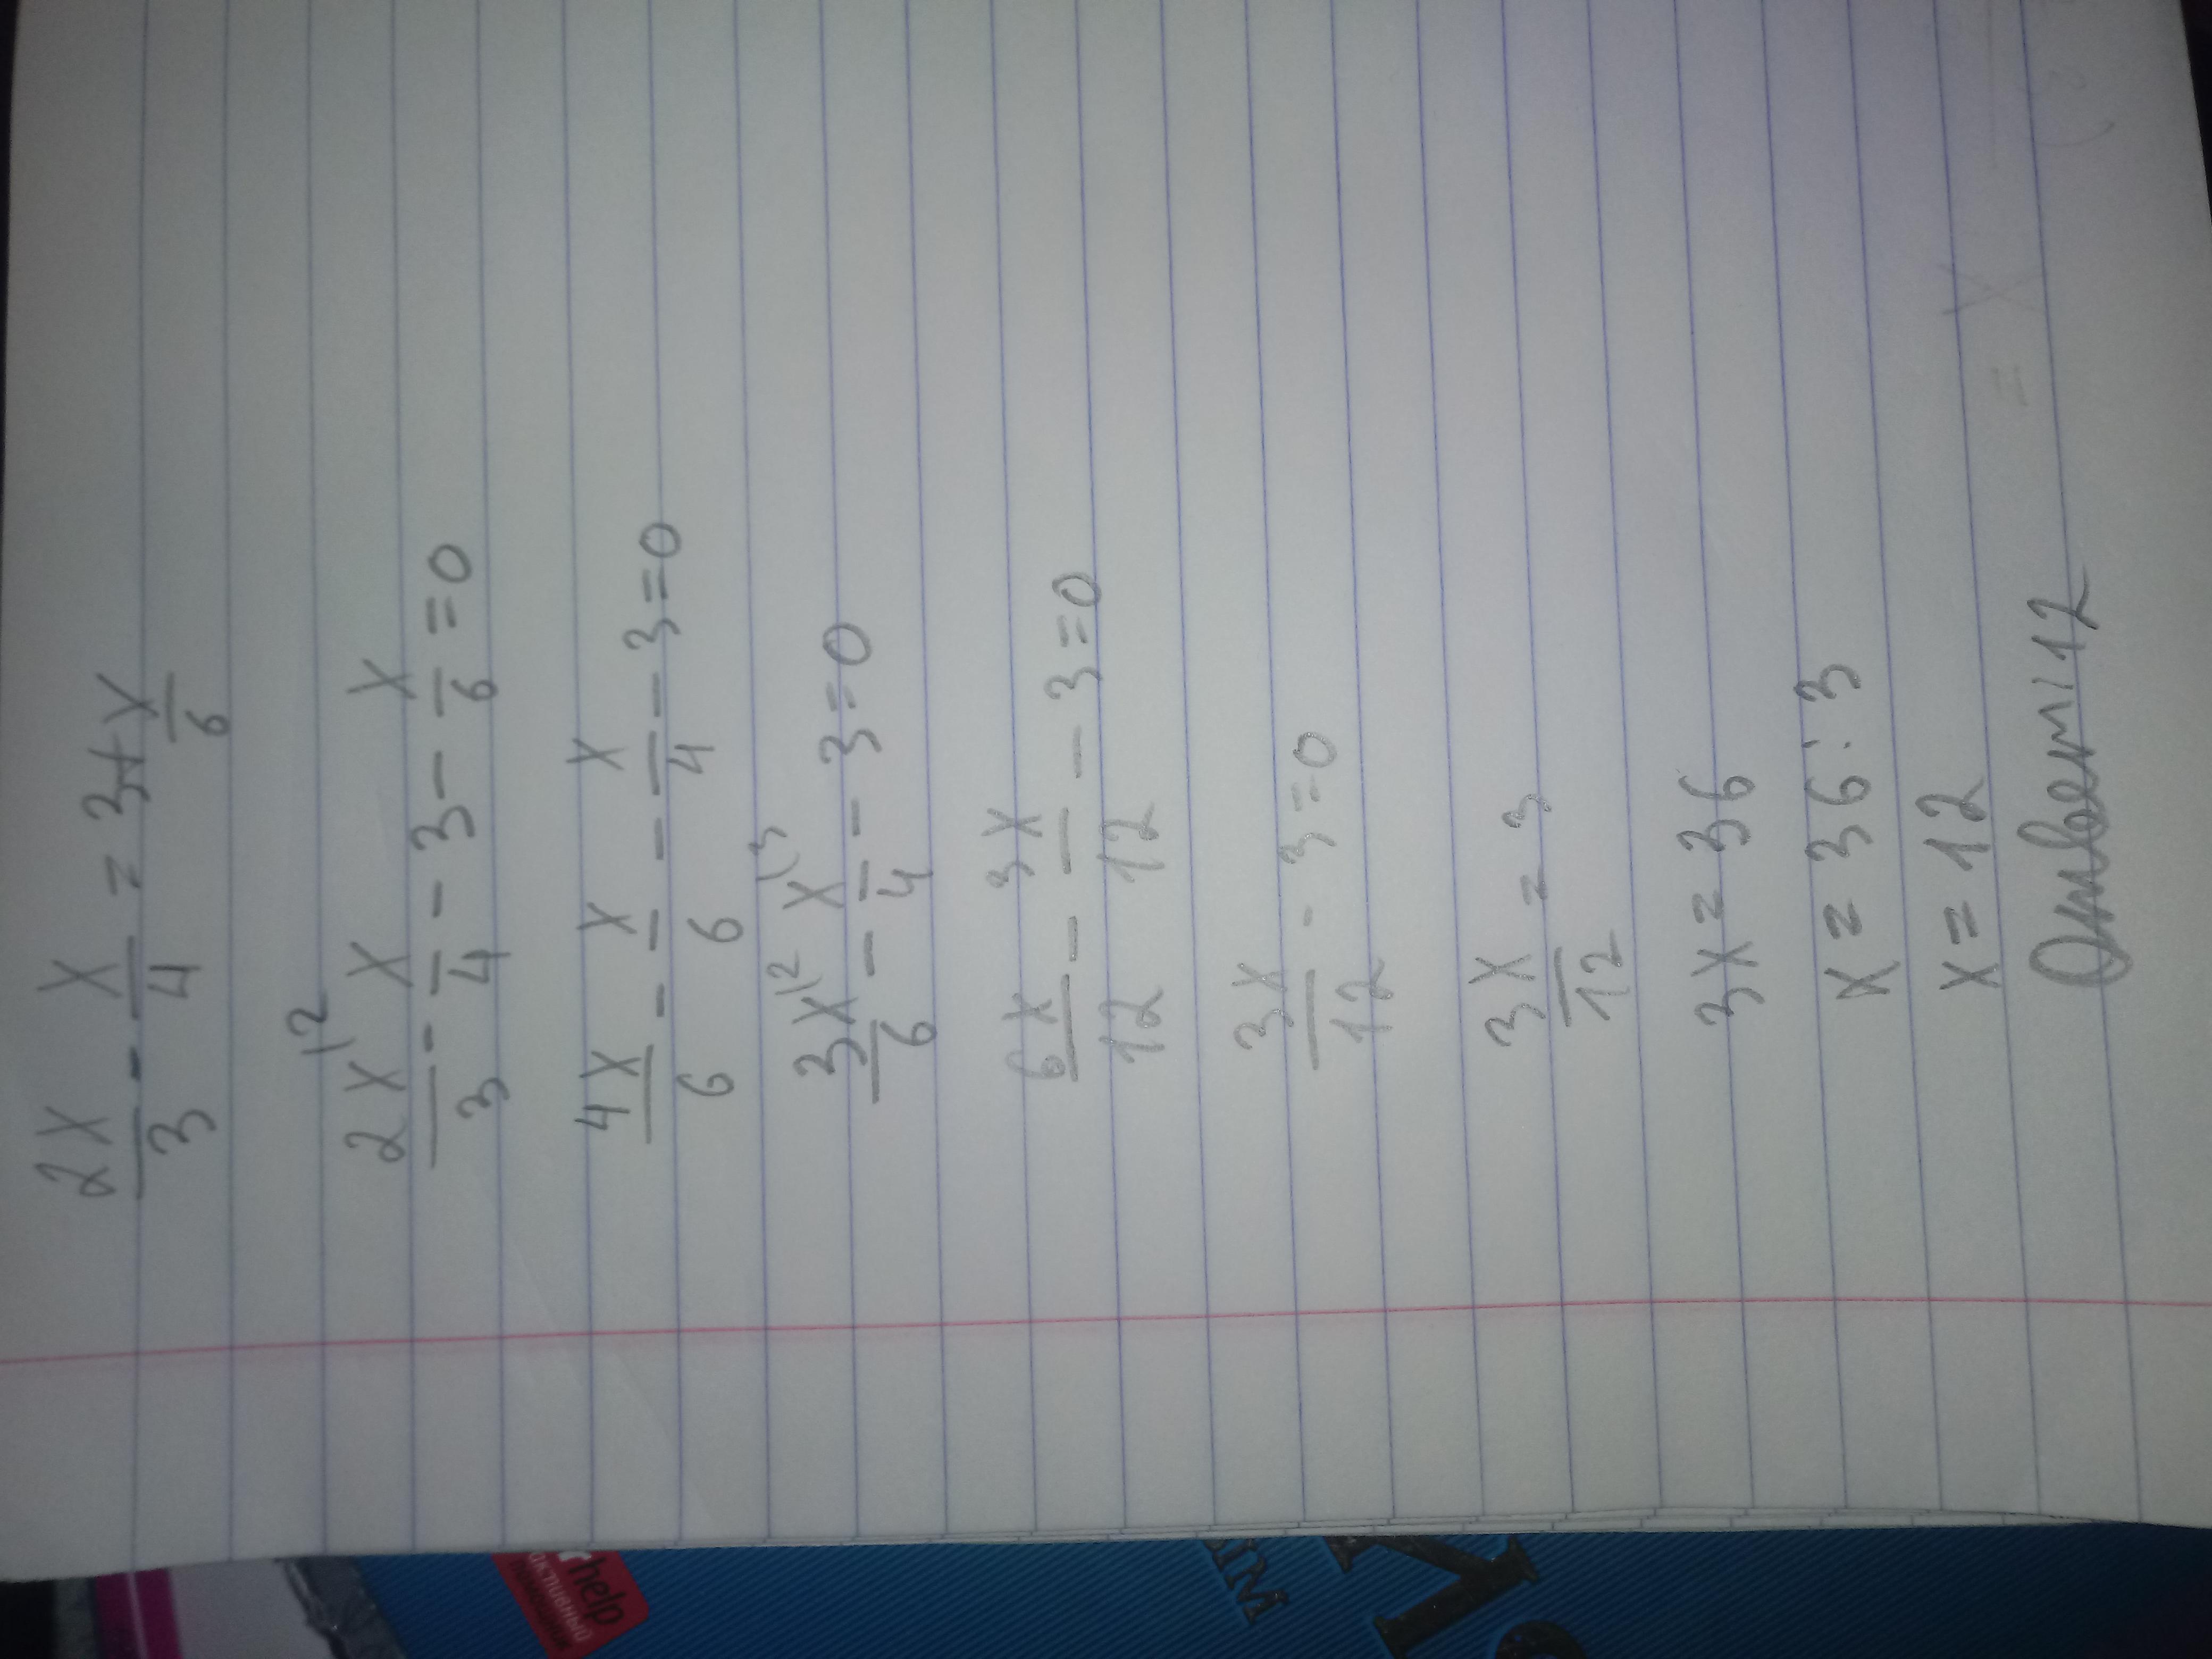 2x/3 - x/4 = 3 + x/6
2x^12/3 - x/4 - 3 - x/6 = 0
4x/6 - x/6 - x/4 - 3 = 0
3x^12/6 - x^13/4 - 3 = 0
6x/12 - 3x/12 - 3 = 0
3x/12 - 3 = 0
3x/12 = 3
3x = 36
x = 36 : 3
x = 12
Ответ: 12
help